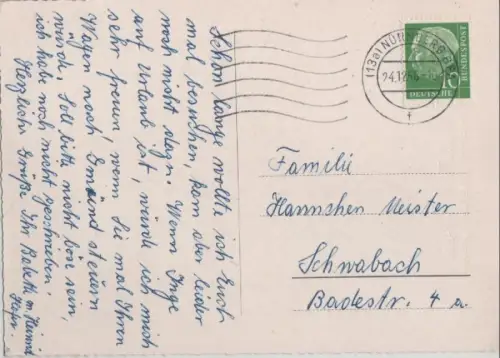 Schon lange wollte ich Euch
mal besuchen, kam aber leider
noch nicht dazu. Wenn Inge
auf Urlaub ist, würde ich mich
sehr freuen, wenn Sie mal Ihren
Wagen nach Gmünd steuern
würde. Soll bitte nicht böse sein,
ich hab noch nicht geschrieben.
Herzliche Grüße Ihr Babeth m. Heinrich
(13a) NÜRNBERG
24.12.56
DEUTSCHE
BUNDESPOST
10
Familie
Hannchen Meister
Schwabach
Badestr. 4 a.